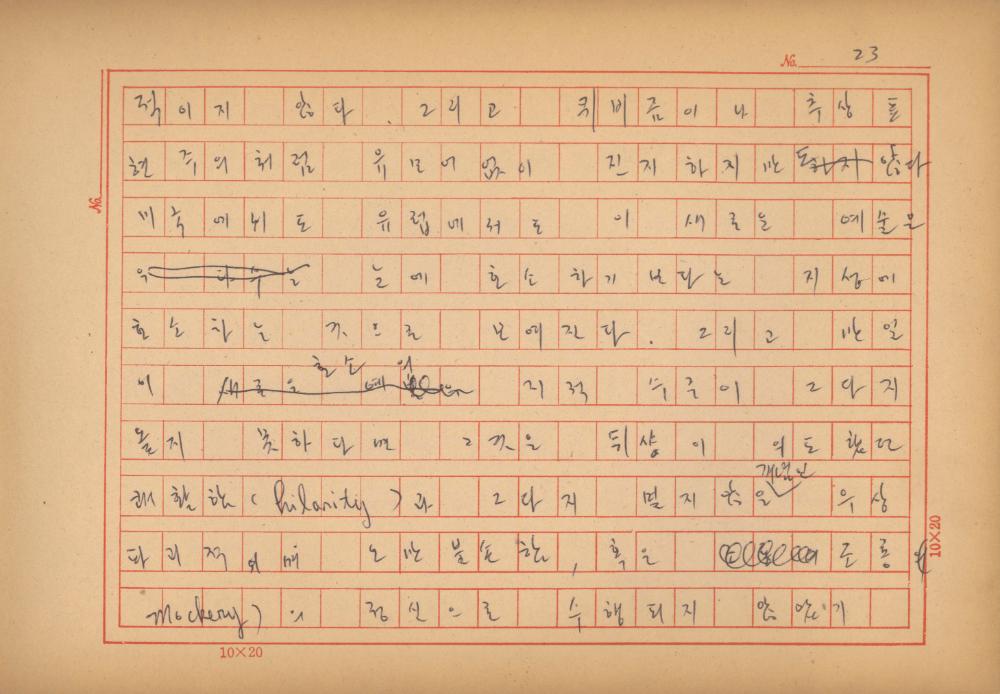 No. 23
적이지 않다. 그리고 퀴비즘이나 추상표
현주의처럼 유모어없이 진지하지만 않다
미국에서도 유럽에서도 이 새로운 예술은
눈에 호소하기 보다는 지성에
호소하는 것으로 보여진다. 그리고 만일
이 호소의 지적 수준이 그다지
높지 못하다면 그것은 뒤샹이 의도했던
쾌활한(hilarity)과 그다지 멀지않은 개념인 우상
파괴적이며 오만불손한, 혹은 조롱(
mockery)의 정신으로 수행되지 않았기
No.
10×20
10×20